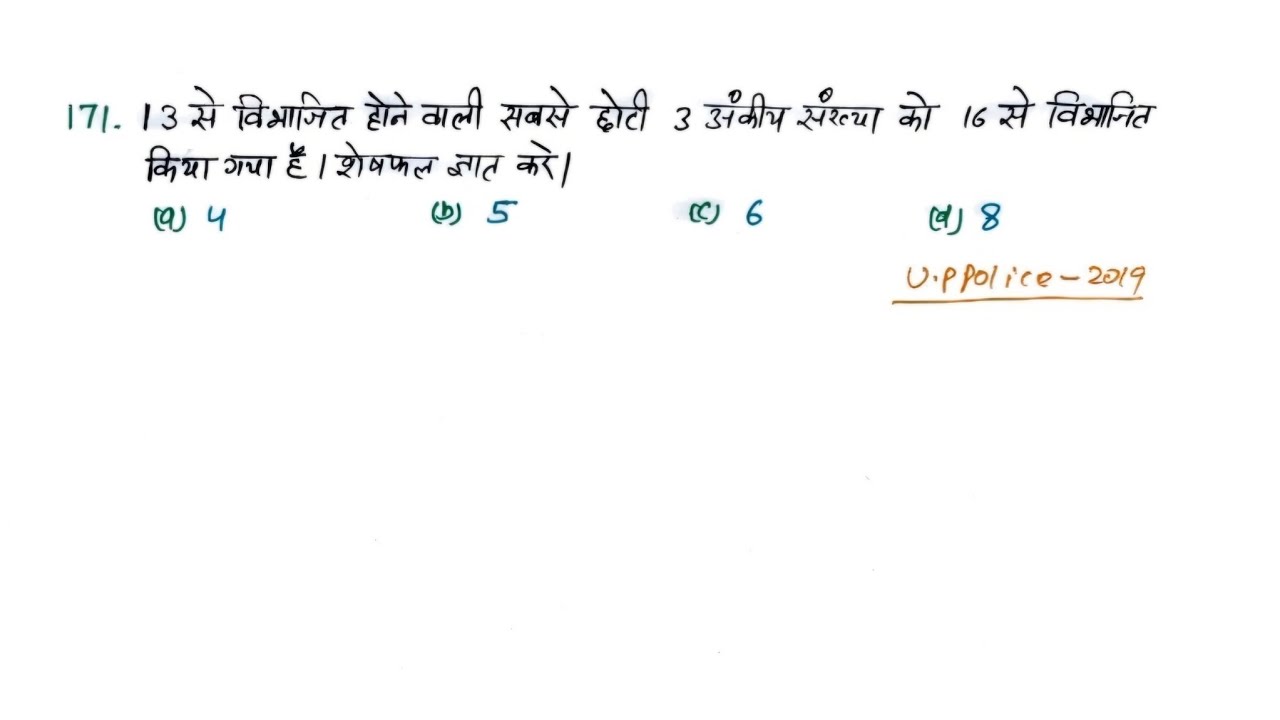 171. 13 से विभाजित होने वाली सबसे छोटी 3 अंकीय संख्या को 16 से विभाजित
किया गया है। शेषफल ज्ञात करे।
(a) 4 (b) 5 (c) 6 (d) 8
U.P Police - 2019